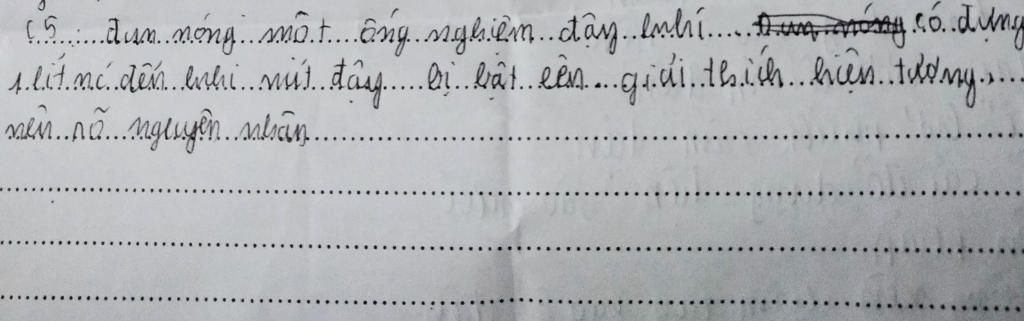 C5: đun nóng một ống nghiệm đậy khí có đựng
1 lít nc đến khi nút đậy bị bật lên giải thích hiện tượng,
nên rõ nguyên nhân